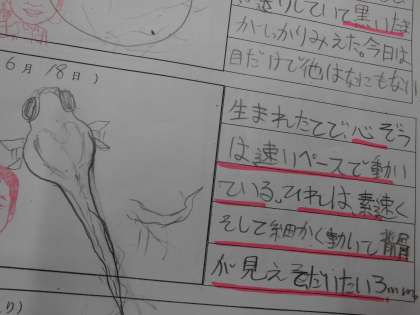 黒いたま
がしっかりみえた。今日は
目だけで他はなにもない
6月18日)
生まれたてで、心ぞう
は速いペースで動い
ている。ひれは、素速く
そして細かく動いて背骨
が見えそだいたい3mm